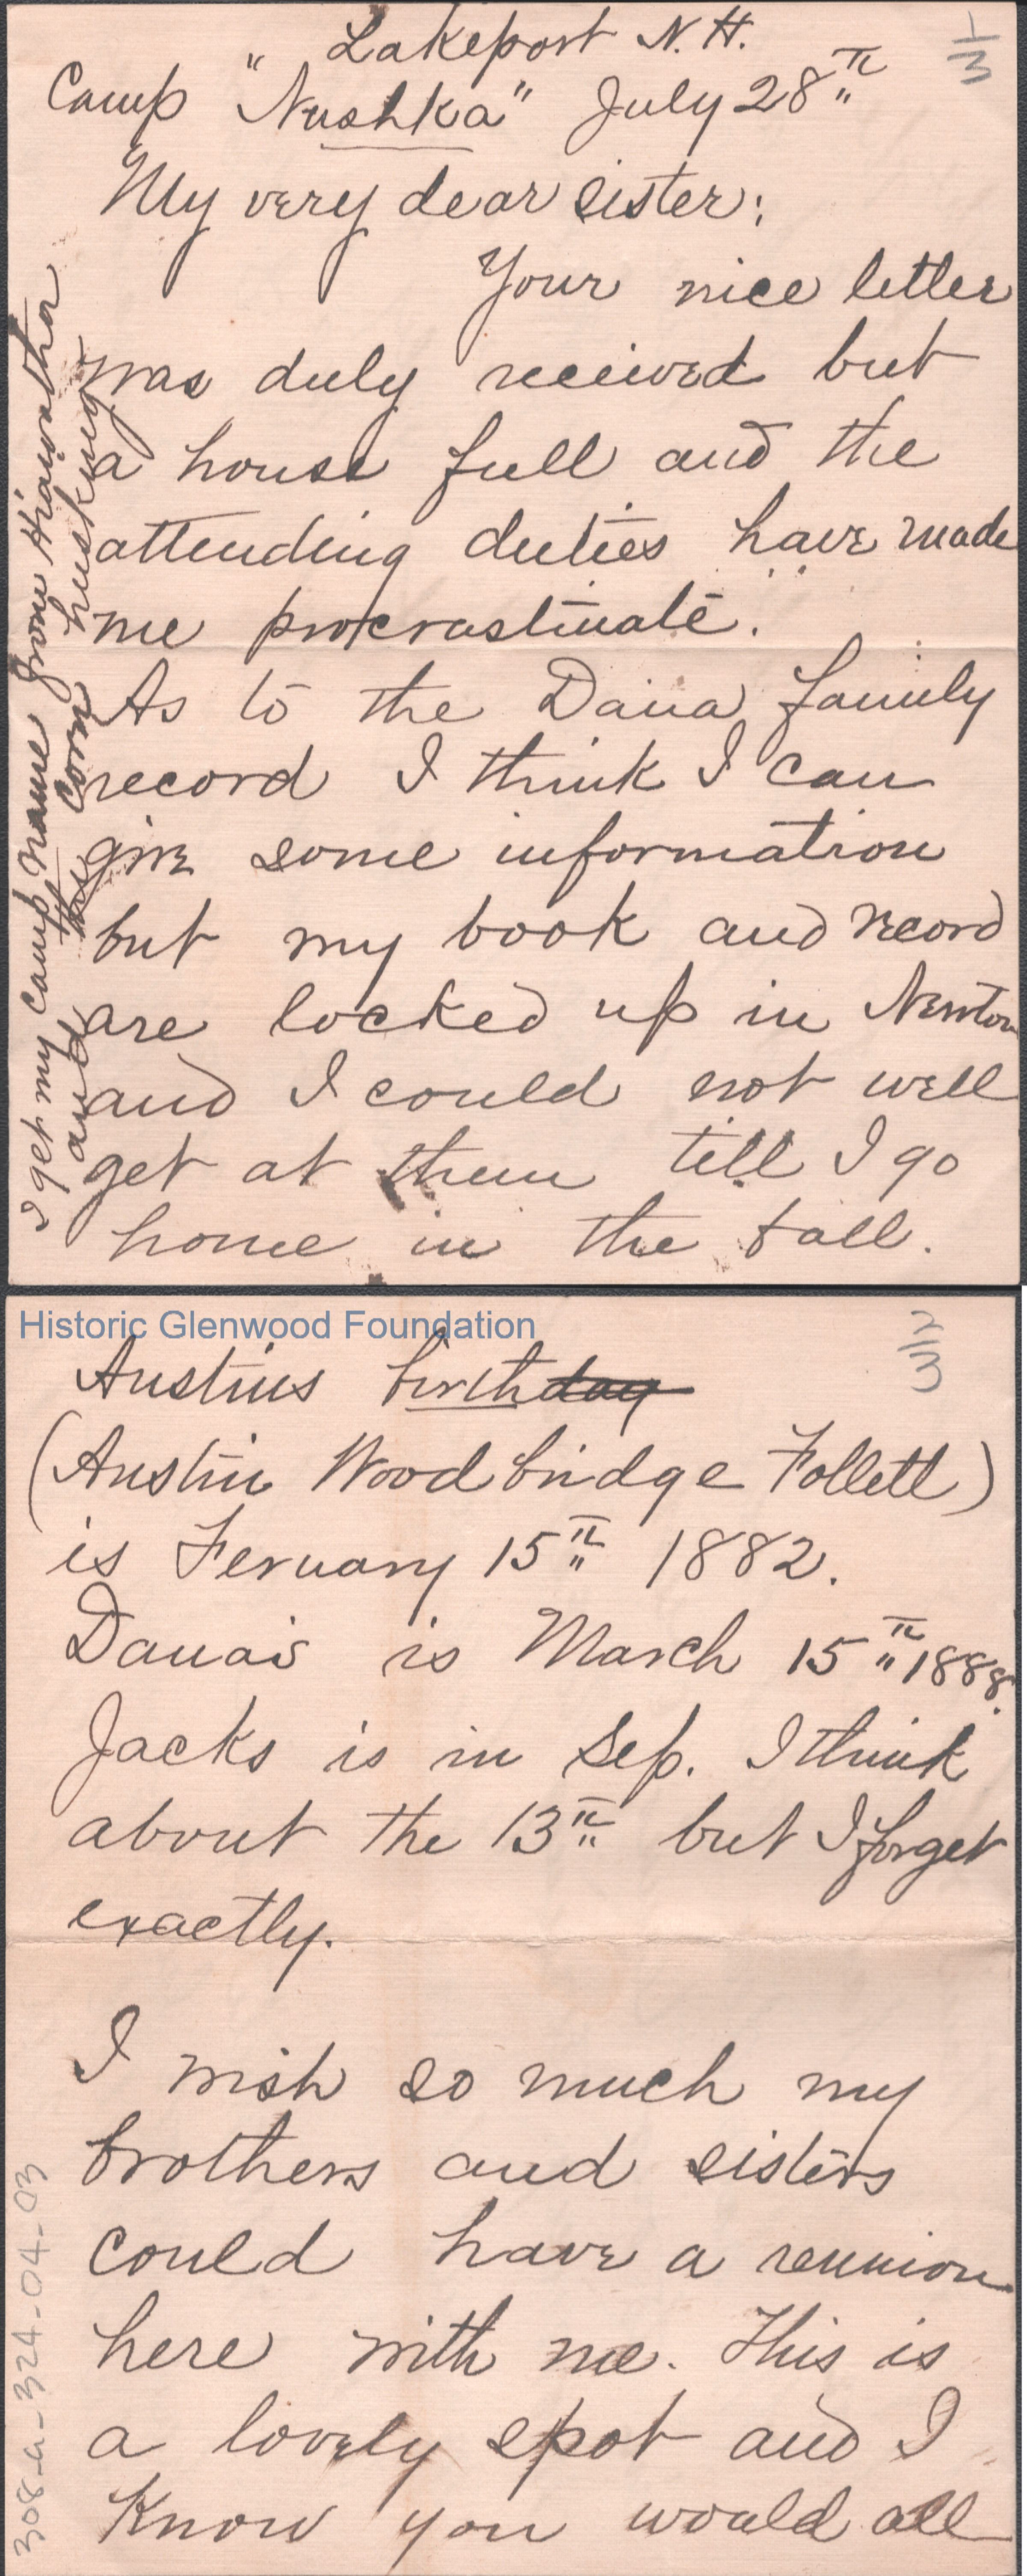 1/3
Lakeport N.H.
Camp "Nushka" July 28th
My very dear sister:
Your nice letter
was duly received but
a house full and the
attending duties have made
me procrastinate.
As to the Dana family
record I think I can
give some information
but my book and record
are locked up in Newton
and I could not well
get at them till I go
home in the fall.
I get my camp name from Hiawatha
and the corn husking
Historic Glenwood Foundation
2/3
Austins birthday
(Austin Woodbridge Follett)
is Feruary 15th 1882.
Danais is March 15th 1888.
Jacks is in Sep. I think
about the 13th but I forget
exactly.
I wish so much my
brothers and sisters
could have a reunion
here with me. This is
a lovely spot and I
know you would all
308-a-324-04-03